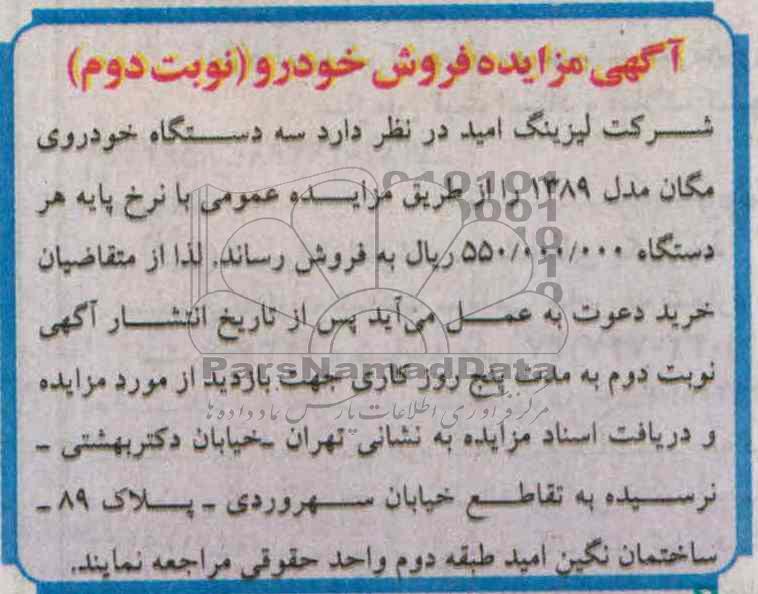 آگهی مزایده فروش خودرو (نوبت دوم)
شرکت لیزینگ امید در نظر دارد سه دستگاه خودروی
مگان مدل ۱۳۸۹ را از طریق مزایده عمومی با نرخ پایه هر
دستگاه ۵۵۰/۰۰۰/۰۰۰ ریال به فروش رساند. لذا از متقاضیان
خرید دعوت به عمل می‌آید پس از تاریخ انتشار آگهی
نوبت دوم به مدت پنج روز کاری جهت بازدید از مورد مزایده
و دریافت اسناد مزایده به نشانی تهران ـ خیابان دکتربهشتی ـ
نرسیده به تقاطع خیابان سهروردی ـ پلاک ۸۹ ـ
ساختمان نگین امید طبقه دوم واحد حقوقی مراجعه نمایند.
ParsNamadData
مرکز فرآوری اطلاعات پارس نماد داده ها